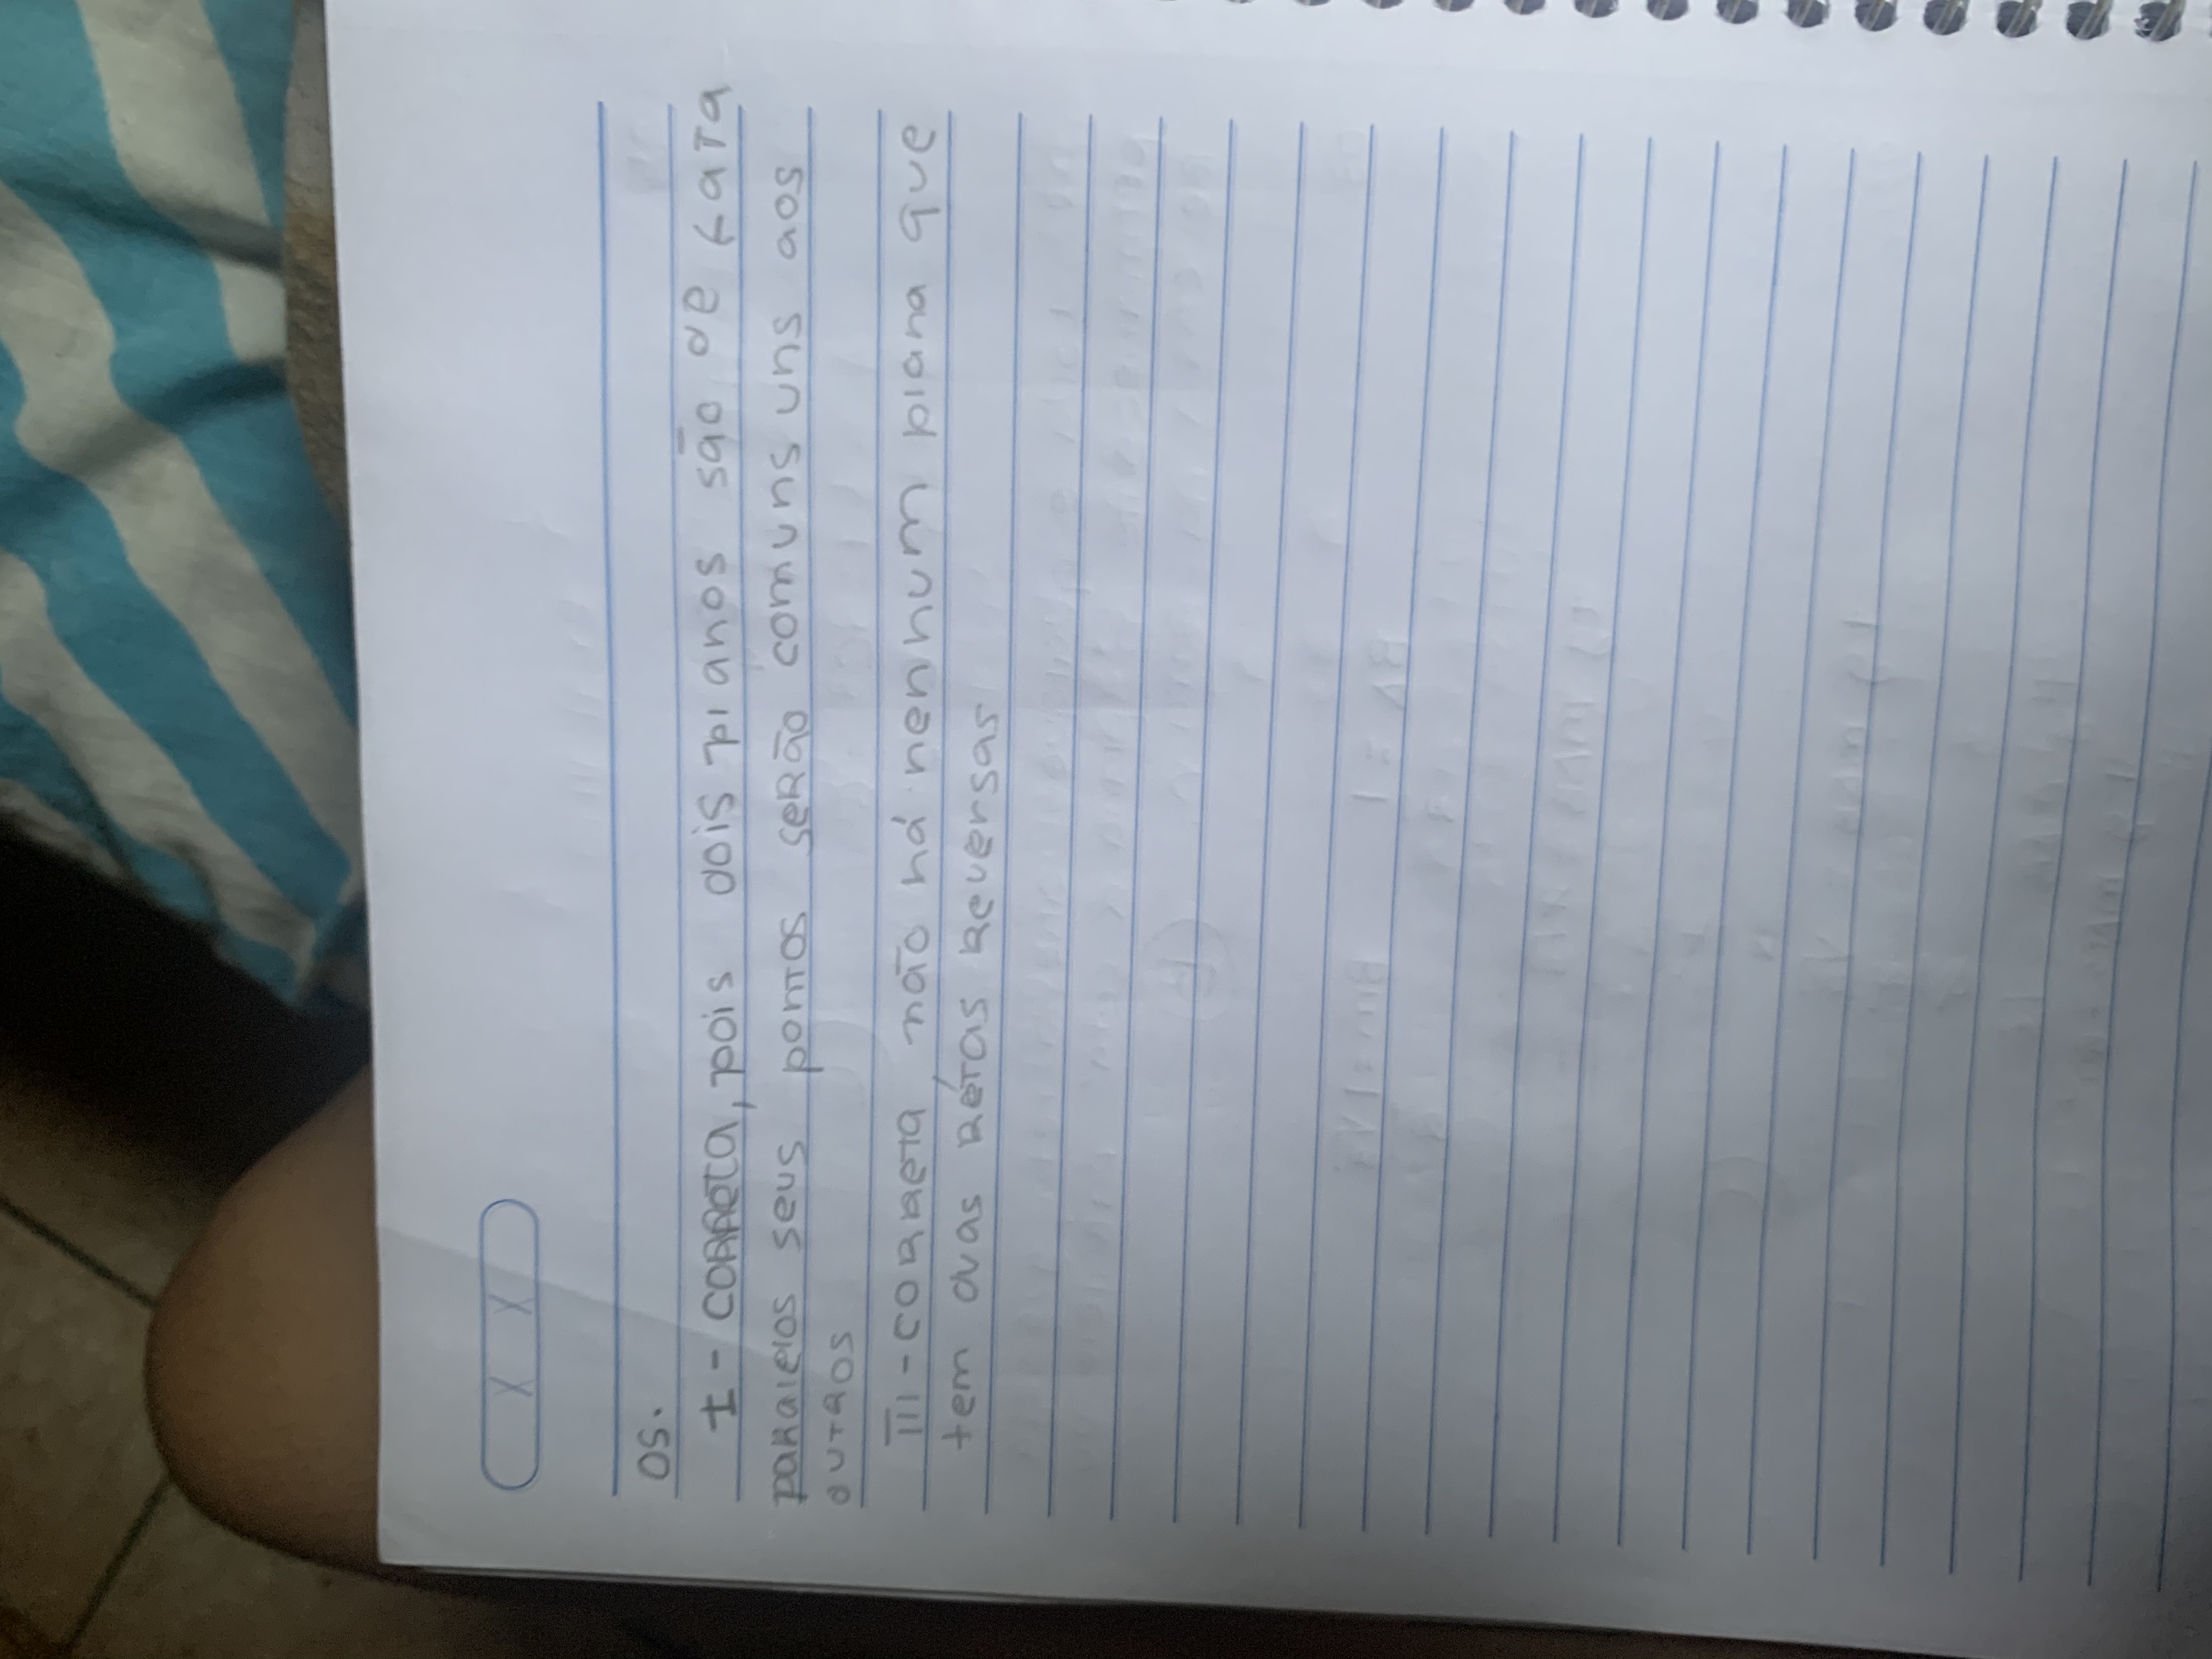 X X
05.
I - CORRETA, pois dois planos são de fata
paralelos seus pontos serão comuns uns aos
outros
III - CORRETA, não há nenhum plana que
tem duas rétas reversas